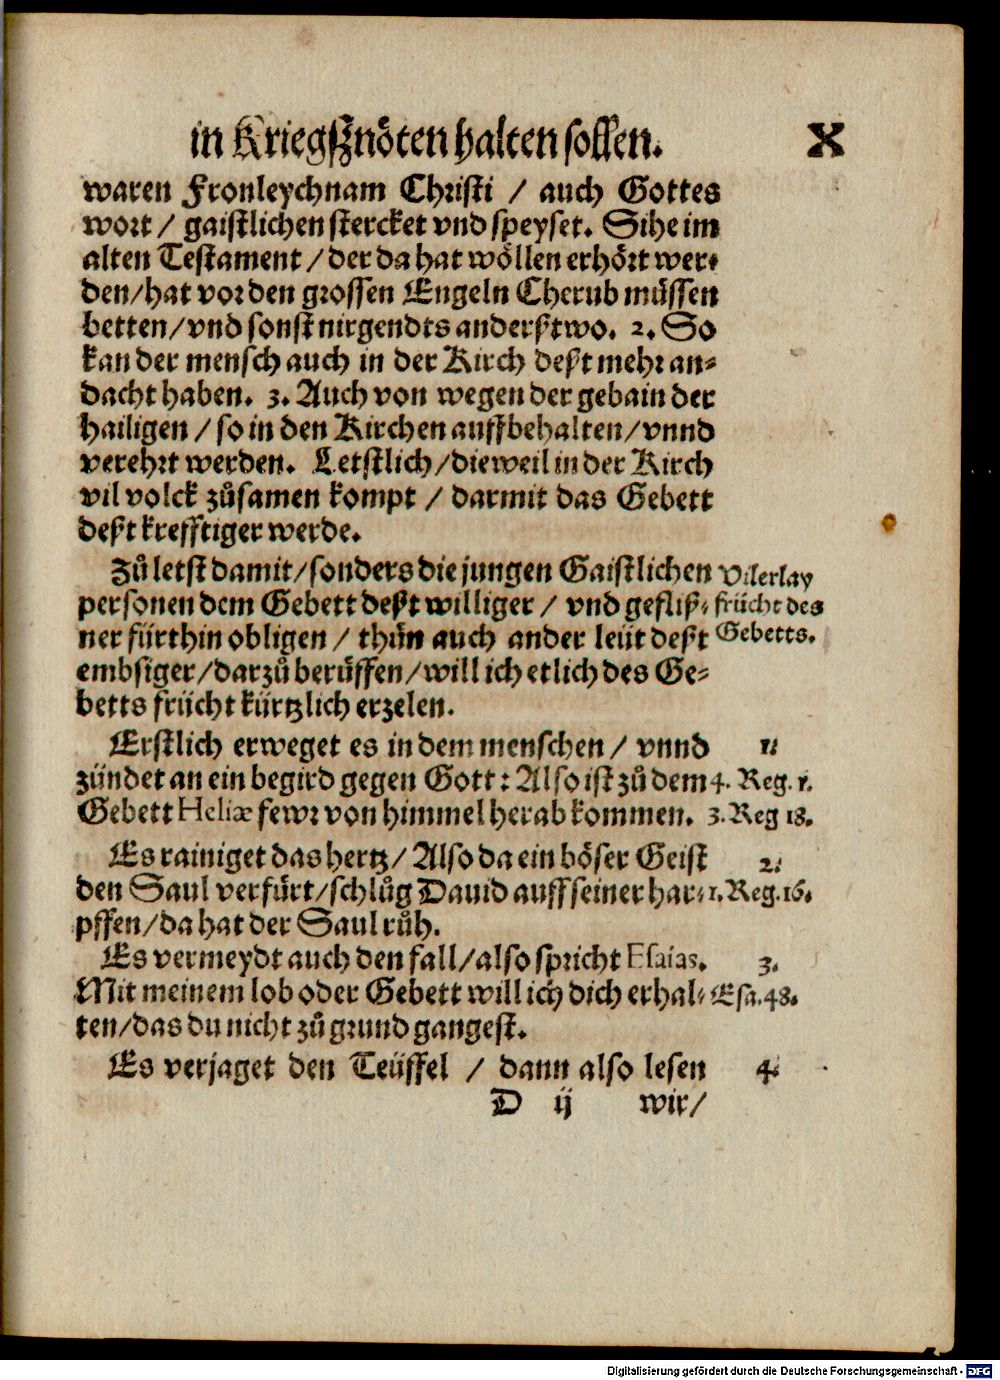 in Kriegßznöten halten sollen. X
waren Fronleychnam Christi / auch Gottes
wort / gaistlichen stercket vnd speyset. Sihe im
alten Testament / der da hat wöllen erhört wer-
den/hat vor den grossen Engeln Cherub müssen
betten/vnd sonst nirgendts anderßtwo. 2. So
kan der mensch auch in der Kirch deßt mehr an-
dacht haben. 3. Auch von wegen der gebain der
hailigen / so in den Kirchen auffbehalten/vnnd
verehrt werden. Letstlich/dieweil in der Kirch
vil volck zůsamen kompt / darmit das Gebett
deßt krefftiger werde.
Zů letst damit/sonders die jungen Gaistlichen
personen dem Gebett deßt williger / vnd gefliß-
ner fürthin obligen / thůn auch ander leüt deßt
embsiger/darzů berůffen/will ich etlich des Ge-
betts frücht kürtzlich erzelen.
Vilerlay
frücht des
Gebetts.
Erstlich erweget es in dem menschen / vnnd
zündet an ein begird gegen Gott: Also ist zů dem
Gebett Heliæ fewr von himmel herab kommen.
1.
4. Reg. 1.
3. Reg 18.
Es rainiget das hertz/ Also da ein böser Geist
den Saul verfürt/schlůg Dauid auff seiner har-
pffen/da hat der Saul růh.
2.
1. Reg. 16.
Es vermeydt auch den fall/also spricht Esaias.
Mit meinem lob oder Gebett will ich dich erhal-
ten/das du nicht zů grund gangest.
3.
Esa. 48.
Es verjaget den Teüffel / dann also lesen
4.
D ij wir/
Digitalisierung gefördert durch die Deutsche Forschungsgemeinschaft - DFG